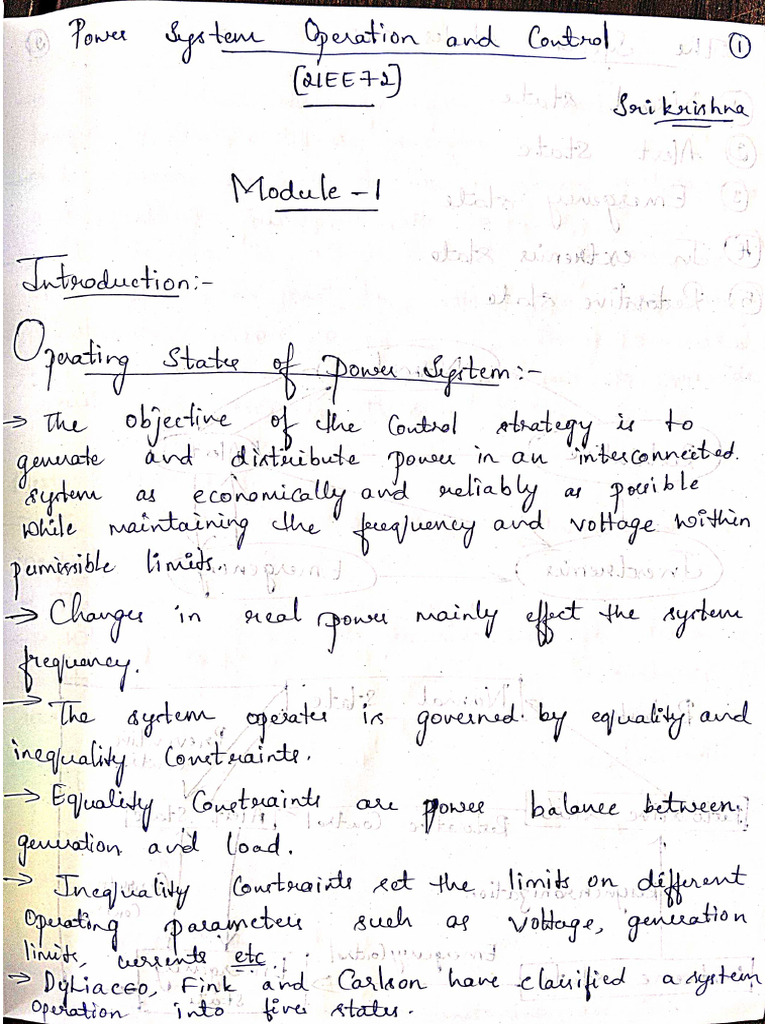 Power System Operation and Control
1
[21EE72]
Srikrishna
Module - 1
Introduction:-
Operating States of Power System:-
→ The objective of the Control strategy is to
generate and distribute power in an interconnected
system as economically and reliably as possible
while maintaining the frequency and voltage within
permissible limits.
→ Changes in real power mainly effect the system
frequency.
→ The system operates is governed by equality and
inequality Constraints.
→ Equality Constraints are power balance between
generation and load.
→ Inequality Constraints set the limits on different
Operating parameters such as voltage, generation
limits, currents etc.
→ DyLiacco, Fink and Carlson have classified a system
operation into five states.